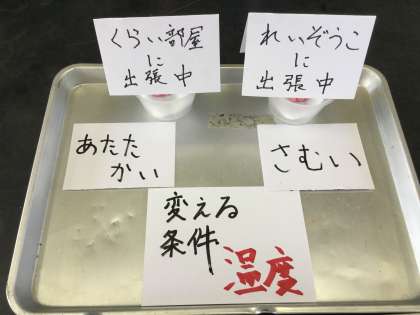 くらい部屋
に
出張中
れいぞうこ
に
出張中
あたた
かい
さむい
変える
条件
温度